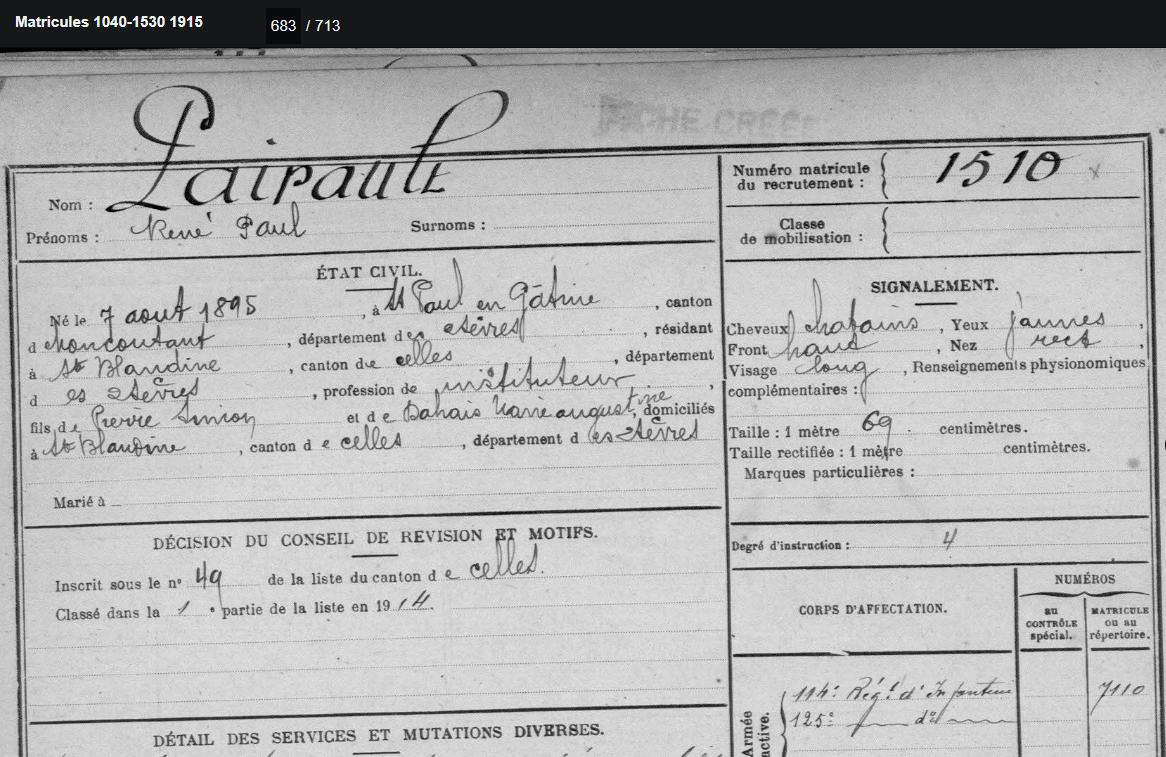 Matricules 1040-1530 1915
683 / 713
FICHE CRÉÉE
Nom : Paipault
Prénoms : René Paul Surnoms :
Numéro matricule
du recrutement : 1510
Classe
de mobilisation :
ÉTAT CIVIL.
Né le 7 aout 1895, à St Paul en Gâtine, canton
d Moncoutant, département des 2 Sèvres, résidant
à Ste Blandine, canton de celles, département
d es 2 Sèvres, profession de instituteur,
fils de Pierre Simon et de Marie augustine, domiciliés
à Ste Blandine, canton d e celles, département d es 2 Sèvres
Marié à
SIGNALEMENT.
Cheveux chatains, Yeux jaunes,
Front haut, Nez rect,
Visage long, Renseignements physionomiques
complémentaires :
Taille : 1 mètre 69 centimètres.
Taille rectifiée : 1 mètre centimètres.
Marques particulières :
Degré d'instruction : 4
DÉCISION DU CONSEIL DE REVISION ET MOTIFS.
Inscrit sous le n° 49 de la liste du canton d e celles.
Classé dans la 1 e partie de la liste en 1914.
CORPS D'AFFECTATION.
NUMÉROS
au
CONTRÔLE
spécial.
MATRICULE
ou au
répertoire.
Armée
active.
114e Régt d'Infanterie 7110
125e do
DÉTAIL DES SERVICES ET MUTATIONS DIVERSES.